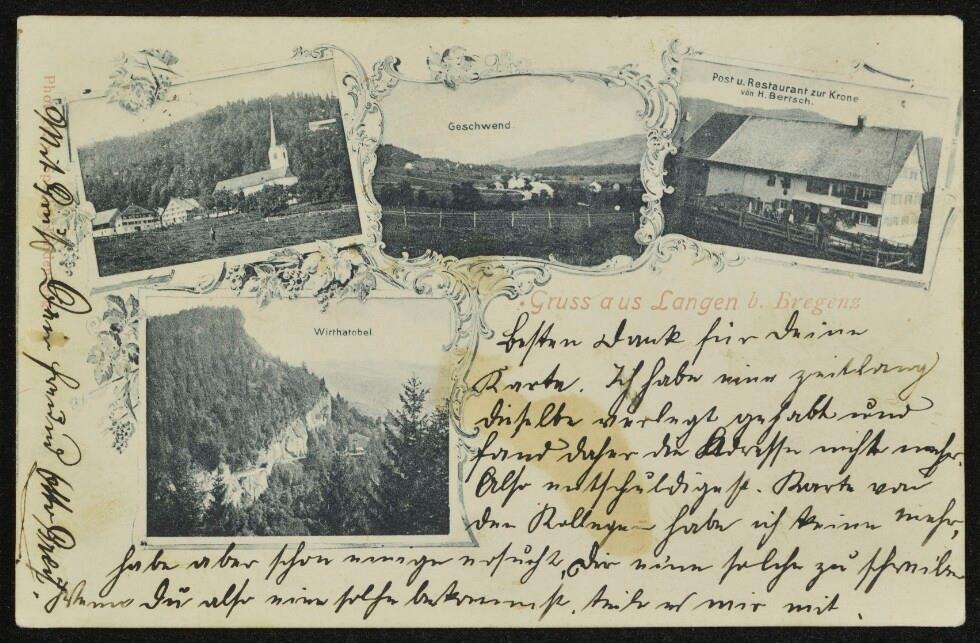 Geschwend
Post u. Restaurant zur Krone
von H. Bertsch.
Wirthatobel.
Gruss aus Langen b. Bregenz
Besten Dank für Deine
Karte. Ich habe eine zeitlang
dieselbe verlegt gehabt und
fand daher die Adresse nicht mehr.
Also entschuldigest. Karte von
den Kollegen habe ich keine mehr,
habe aber schon einige ersucht, Dir eine solche zu schreiben
Wenn Du also eine solche bekommst, teile es mir mit.
Mit Gruß Dein Freund